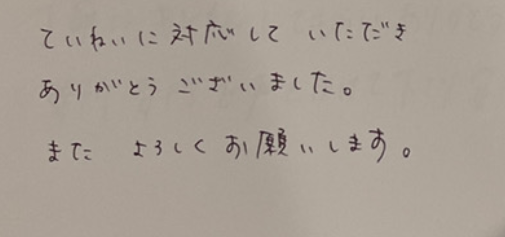 ていねいに対応して いただき
ありがとう ございました。
また よろしく お願いします。